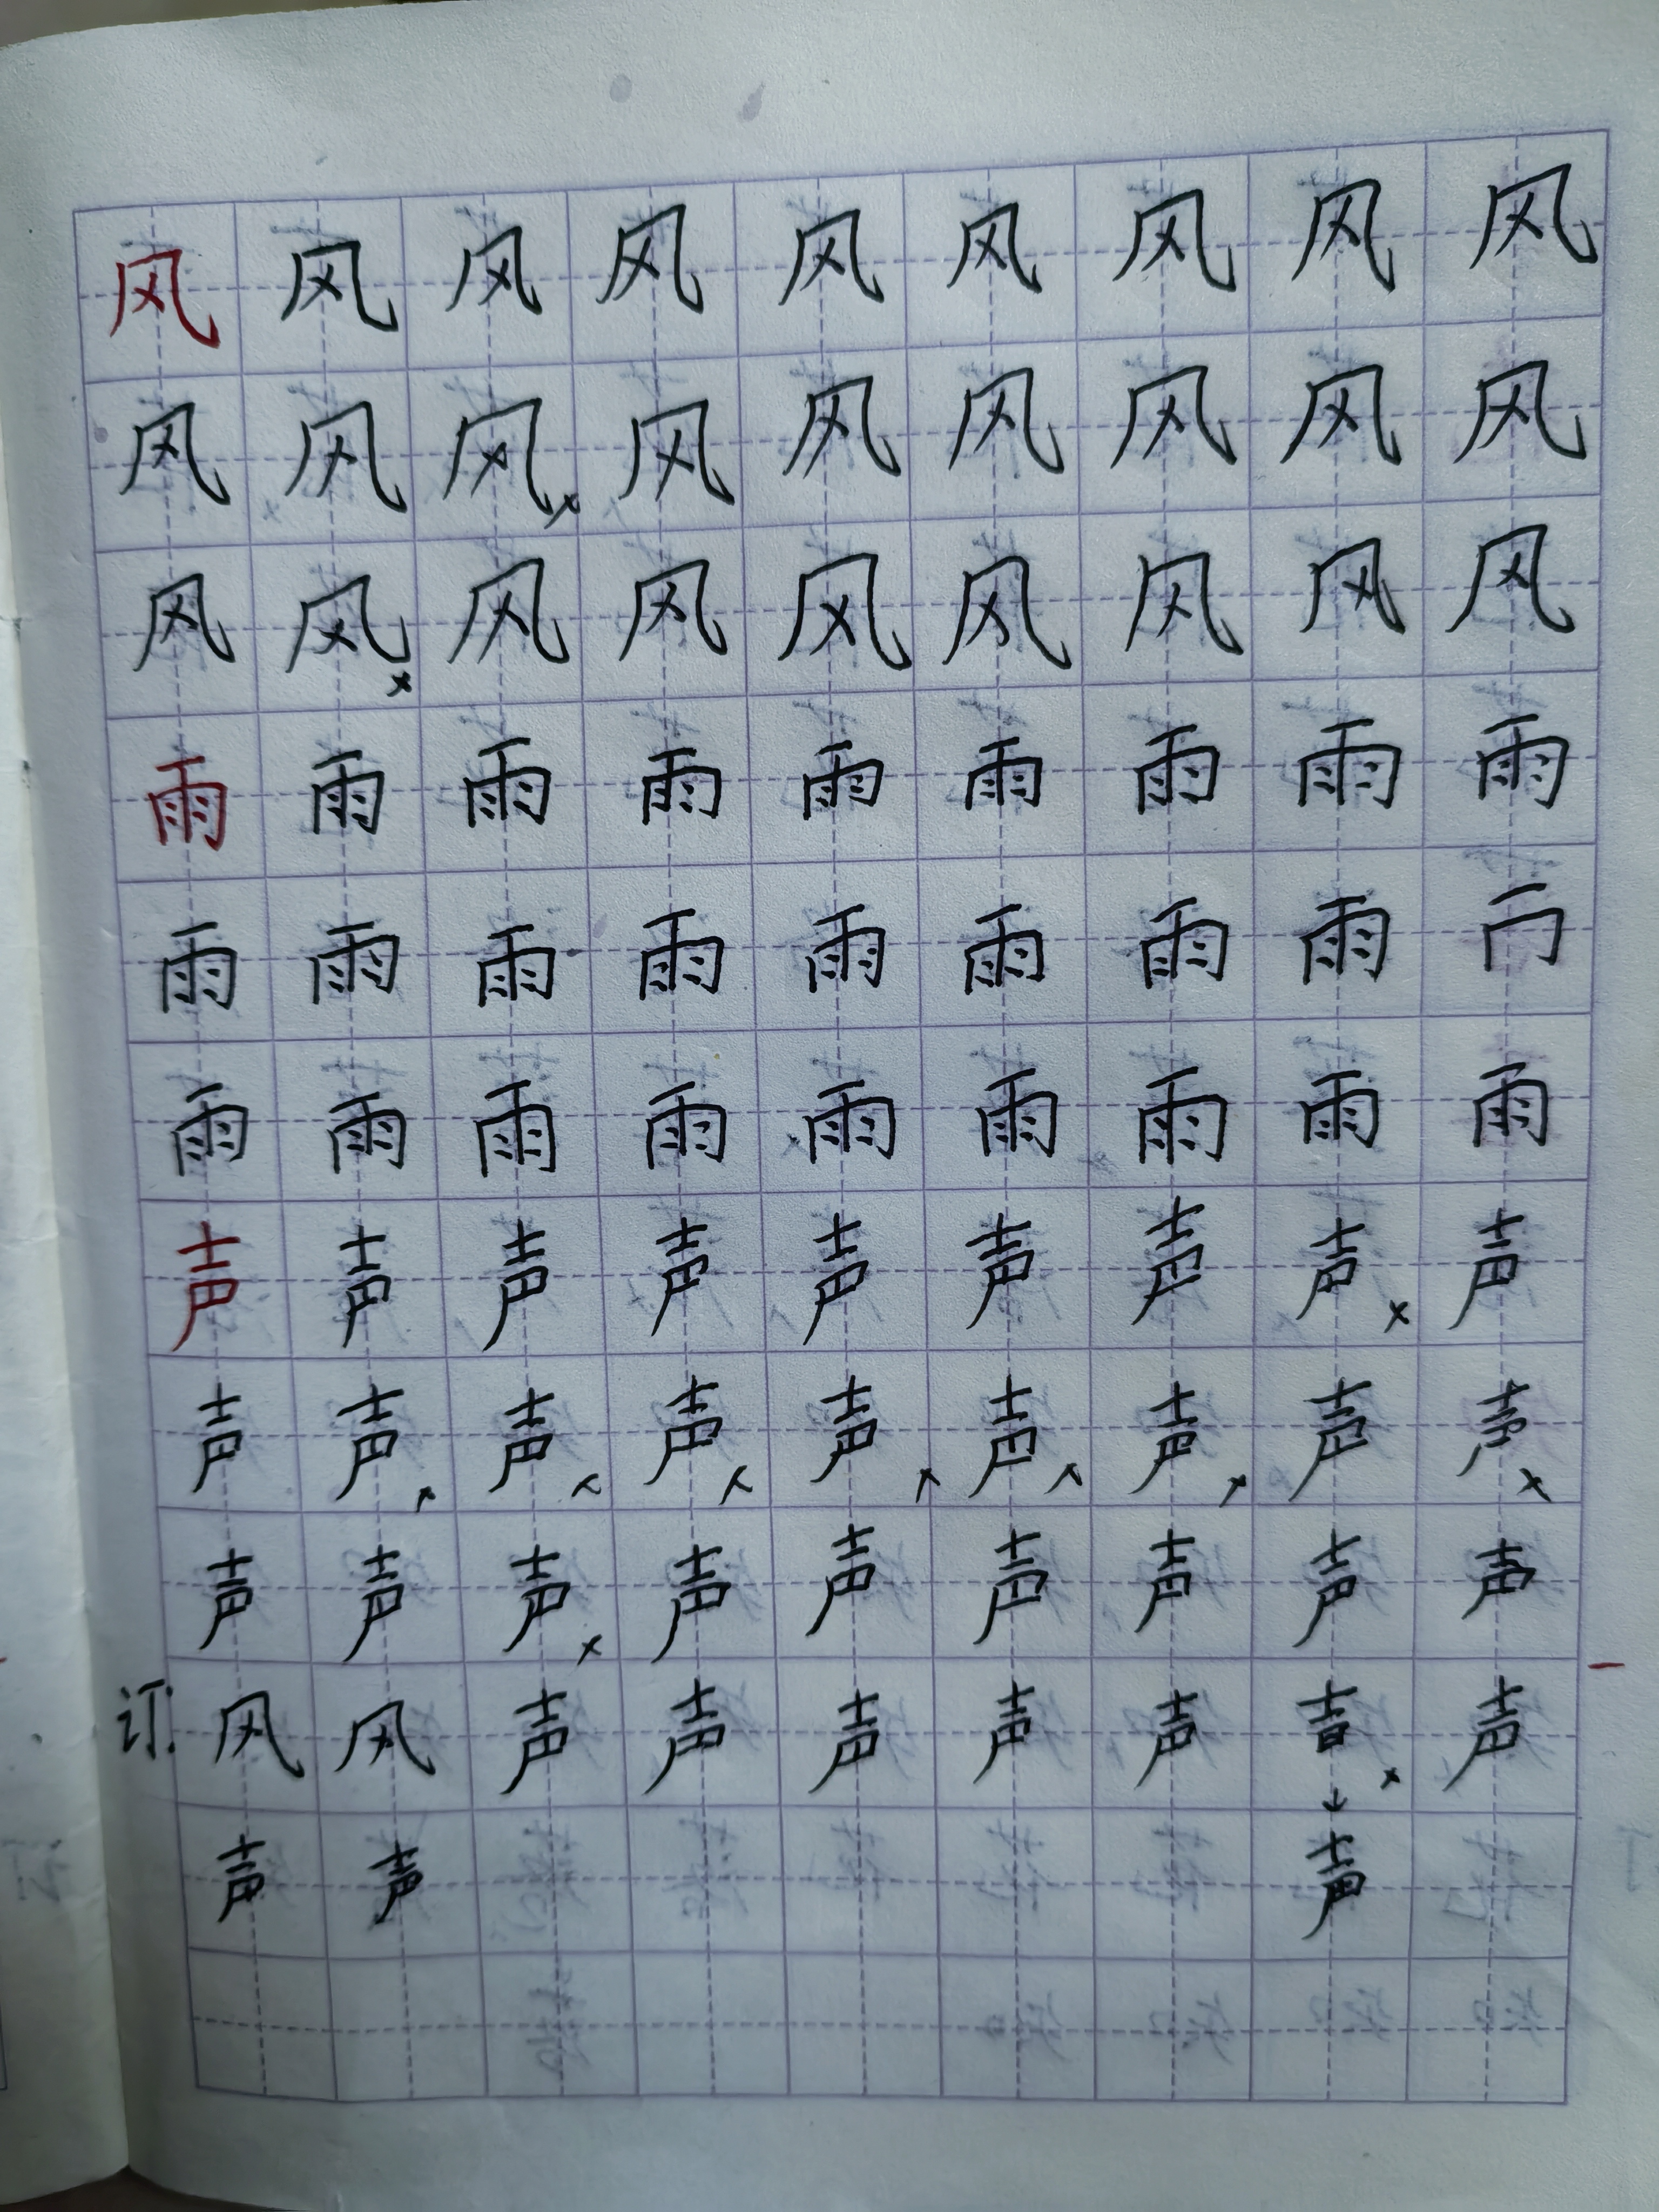 风风风风风风风风风
风风风风风风风风风
风风风风风风风风风
雨雨雨雨雨雨雨雨雨
雨雨雨雨雨雨雨雨
雨雨雨雨雨雨雨雨雨
声声声声声声声声声
声声声声声声声声声
声声声声声声声声声
订:风风声声声声声声声
声声声